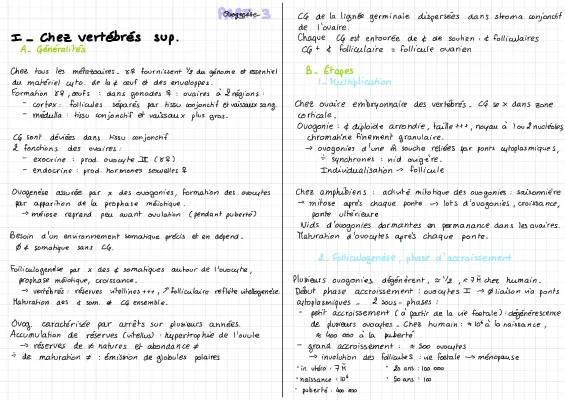 PART 3
Ovogenèse
I - Chez vertébrés sup.
A - Généralités
Chez tous les métazoaires. ♂♀ fournissent 1/2 du génome et essentiel
du matériel cyto. de la ¢ œuf et des enveloppes.
Formation ♂♀, œufs : dans gonades ♀ : ovaires à 2 régions :
- cortex : follicules séparés par tissu conjonctif et vaisseaux sang.
- médulla : tissu conjonctif et vaisseaux plus gros.
CG sont déviées dans tissu conjonctif
2 fonctions des ovaires :
- exocrine : prod. ovocyte II (♂♀)
- endocrine : prod. hormones sexuelles ♀
Ovogenèse assurée par x des ovogonies, formation des ovocytes
par apparition de la prophase méiotique.
→ méiose reprend peu avant ovulation (pendant puberté)
Besoin d'un environnement somatique précis et en dépend.
Ø ¢ somatique sans CG.
Folliculogenèse par x des ¢ somatiques autour de l'ovocyte,
prophase méiotique, croissance.
→ vertébrés : réserves vitellines +++, folliculaire reflète vitellogenèse.
Maturation des ¢ som. et CG ensemble.
Ovog. caractérisée par arrêts sur plusieurs années.
Accumulation de réserves (vitellus) : hypertrophie de l'ovule
→ réserves de ≠ natures et abondance ≠
÷ de maturation ≠ : émission de globules polaires
CG de la lignée germinale dispersées dans stroma conjonctif
de l'ovaire.
Chaque CG est entourée de ¢ de soutien : ¢ folliculaires
CG + ¢ folliculaire = follicule ovarien
B - Étapes
1 - Multiplication
Chez ovaire embryonnaire des vertébrés. CG se x dans zone
corticale.
Ovogonie : ¢ diploïde arrondie, taille +++, noyau à 1 ou 2 nucléoles,
chromatine finement granulaire.
→ ovogonies d'une ¢ souche reliées par ponts cytoplasmiques,
÷ synchrones : nid ovigère.
Individualisation → follicule
Chez amphibiens : activité mitotique des ovogonies : saisonnière
→ mitose après chaque ponte → lots d'ovogonies, croissance,
ponte ultérieure
Nids d'ovogonies dormantes en permanence dans les ovaires.
Maturation d'ovocytes après chaque ponte.
2 - Folliculogenèse, phase d'accroissement
Plusieurs ovogonies dégénèrent, ≈ 1/2, ≈ 7M chez humain.
Début phase accroissement : ovocytes I → Ø liaison via ponts
cytoplasmiques - 2 sous-phases :
- petit accroissement (à partir de la vie foetale) : dégénérescence
de plusieurs ovocytes. Chez humain : ≈ 10⁶ à la naissance,
≈ 400 000 à la puberté
- grand accroissement : ≈ 500 ovocytes
→ involution des follicules : vie foetale → ménopause
• in utéro : 7M • 20 ans : 100 000
• naissance : 10⁶ • 50 ans : 100
• puberté : 400 000